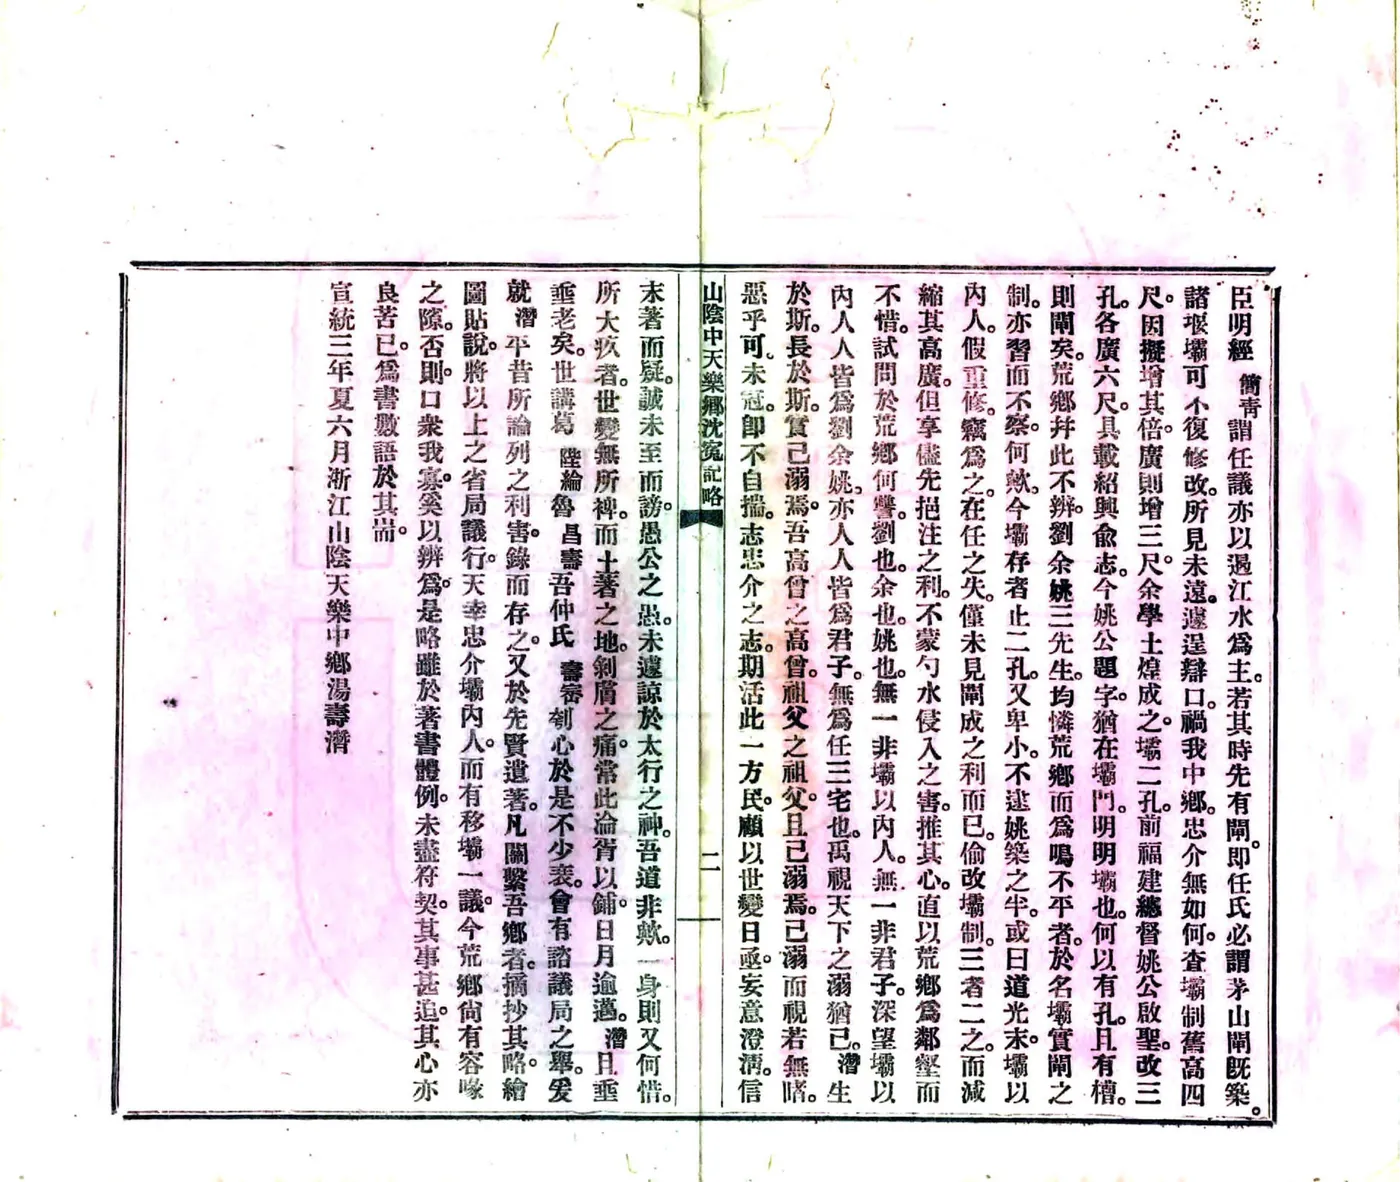 臣明經簡靑謂任議亦以遏江水爲主。若其時先有閘。卽任氏必謂茅山閘旣築。
諸堰壩可不復修改。所見未遠。遽逞辯口。禍我中鄉。忠介無如何。查壩制舊高四
尺。因擬增其倍。廣則增三尺。余學士煌成之。壩二孔。前福建總督姚公啟聖。改三
孔。各廣六尺。具載紹興兪志。今姚公題字。猶在壩門。明明壩也。何以有孔。且有槽。
則閘矣。荒鄉幷此不辨。劉余姚三先生。均憐荒鄉而爲鳴不平者。於名壩實閘之
制。亦習而不察。何歟。今壩存者止二孔。又卑小。不逮姚築之半。或曰道光末。壩以
內人。假重修。竊爲之。在任之失。僅未見閘成之利而已。偷改壩制。三者二之。而減
縮其高廣。但享儘先挹注之利。不蒙勺水侵入之害。推其心。直以荒鄉爲鄰壑而
不惜。試問於荒鄉何讐。劉也。余也。姚也。無一非壩以內人。無一非君子。深望壩以
內人人皆爲劉余姚。亦人人皆爲君子。無爲任三宅也。禹視天下之溺猶已。潛生
於斯。長於斯。實已溺焉。吾高曾之高曾。祖父之祖父。且已溺焉。已溺而視若無睹。
惡乎可。未冠。卽不自揣。志忠介之志。期活此一方民。顧以世變日亟。妄意澄淸。信
山陰中天樂鄉沈冤記略
二
末著而疑。誠未至而謗。愚公之愚。未遽諒於太行之神。吾道非歟。一身則又何惜。
所大疚者。世變無所裨。而土著之地。剝膚之痛。常此淪胥以鋪。日月逾邁。潛且垂
垂老矣。世講葛陛綸魯昌壽吾仲氏壽崈刳心於是不少衰。會有諮議局之舉。爰
就潛平昔所論列之利害。錄而存之。又於先賢遺著。凡關繫吾鄉者。摘抄其略。繪
圖貼說。將以上之省局議行。天幸忠介壩內人。而有移壩一議。今荒鄉尙有容喙
之隙。否則。口衆我寡。奚以辨爲。是略雖於著書體例。未盡符契。其事甚迫。其心亦
良苦。已爲書數語於其耑。
宣統三年夏六月浙江山陰天樂中鄉湯壽潛